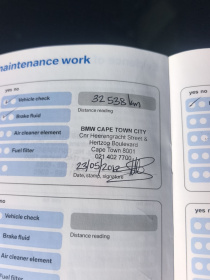 maintenance work
yes no
Vehicle check
Brake fluid
Air cleaner element
Fuel filter
32 538 km
Distance reading
BMW CAPE TOWN CITY
Cnr Heerengracht Street &
Hertzog Boulevard
Cape Town 8001
021 402 7700
23/05/2012
Date, stamp, signature
yes no
no
Vehicle check
Brake fluid
Air cleaner element
Fuel filter
Distance reading
yes